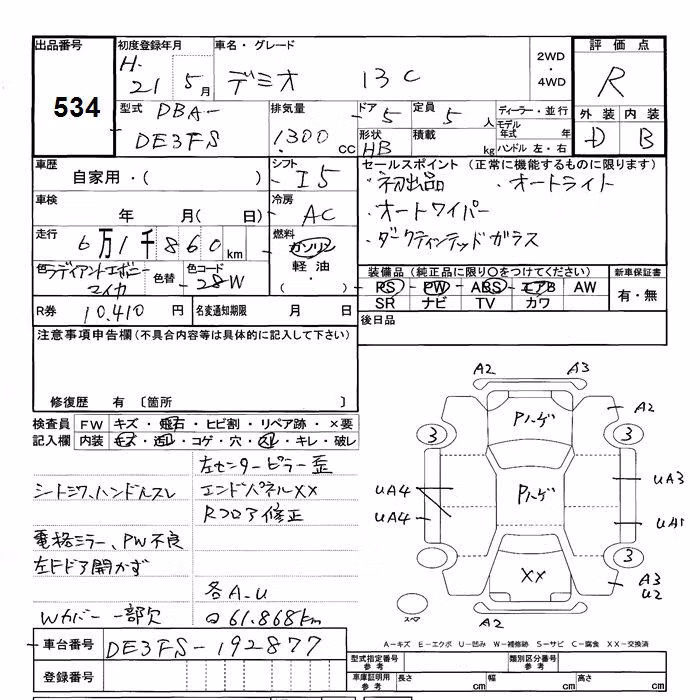 出品番号
534
初度登録年月
H.
21 5月
車名・グレード
デミオ 13C
2WD
・
4WD
評価点
R
外装 内装
D B
型式 DBA-
DE3FS
排気量
1.300 CC
ドア 5
定員 5 人
形状 HB
積載 kg
ディーラー・並行
モデル年式 年
ハンドル 左・右
車歴
自家用・( )
シフト
I5
セールスポイント (正常に機能するものに限ります)
・初出品 ・オートライト
・オートワイパー
・ダークティンテッドガラス
車検
年 月( 日)
冷房
AC
走行
6万1千860km
燃料
ガソリン
軽油
( )
色 ラディアントエボニーマイカ
色替
色コード
28W
装備品 (純正品に限り○をつけてください)
PS PW ABS エアB AW
SR ナビ TV カワ
新車保証書
有・無
R券 10,410 円
名変通知期限 月 日
後日品
注意事項申告欄(不具合内容等は具体的に記入して下さい)
修復歴 有 〔箇所 〕
検査員記入欄
FW キズ・飛石・ヒビ割・リペア跡・×要
内装 キズ・汚れ・コゲ・穴・スレ・キレ・破レ
左センターピラー歪
シートシワ、ハンドルスレ
エンドパネルXX
Rフロア修正
電格ミラー、PW不良
左Fドア開かず
各A.U
Wカバー一部欠
61.868km
A2 A3
A2
Pハゲ
3 3
UA4
UA4
Pハゲ
UA3
UA1
3
XX
A3
U2
スペア
A2
A-キズ E-エクボ U-凹み W-補修跡 S-サビ C-腐食 XX-交換済
車台番号 DE3FS-192877
登録番号
型式指定番号
参考
類別区分番号
参考
車庫証明用
参考
長さ cm
幅 cm
高さ cm